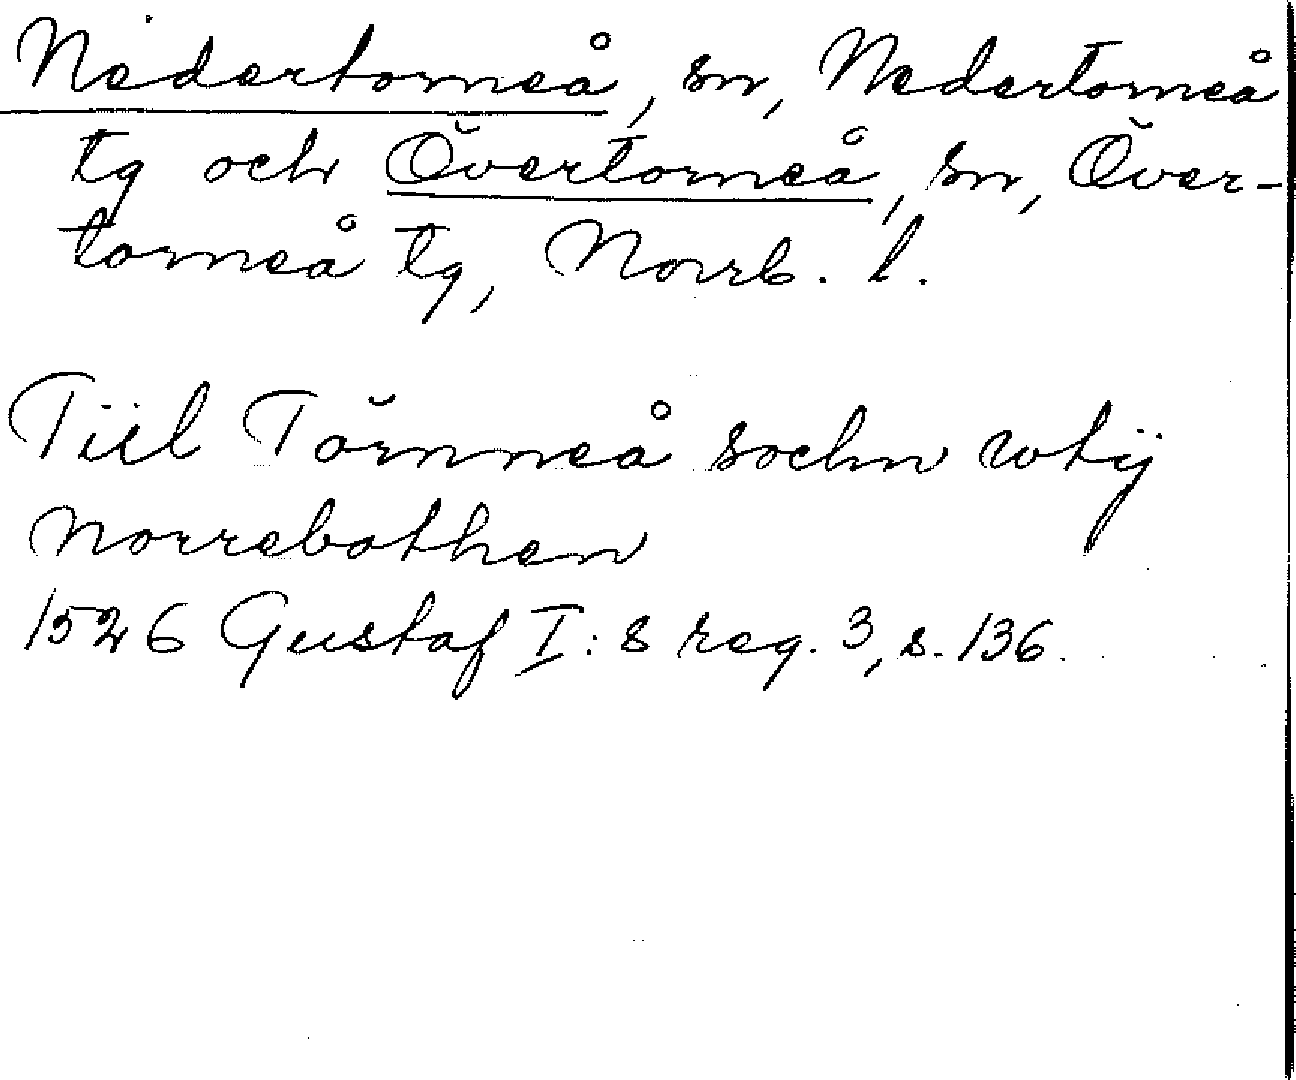 Nedertorneå, sn, Nedertorneå
tg och Övertorneå, sn, Över-
torneå tg, Norrb. l.
Tiil Törnneå sochn wtij
norrebothen
1526 Gustaf I:s reg. 3, s. 136.